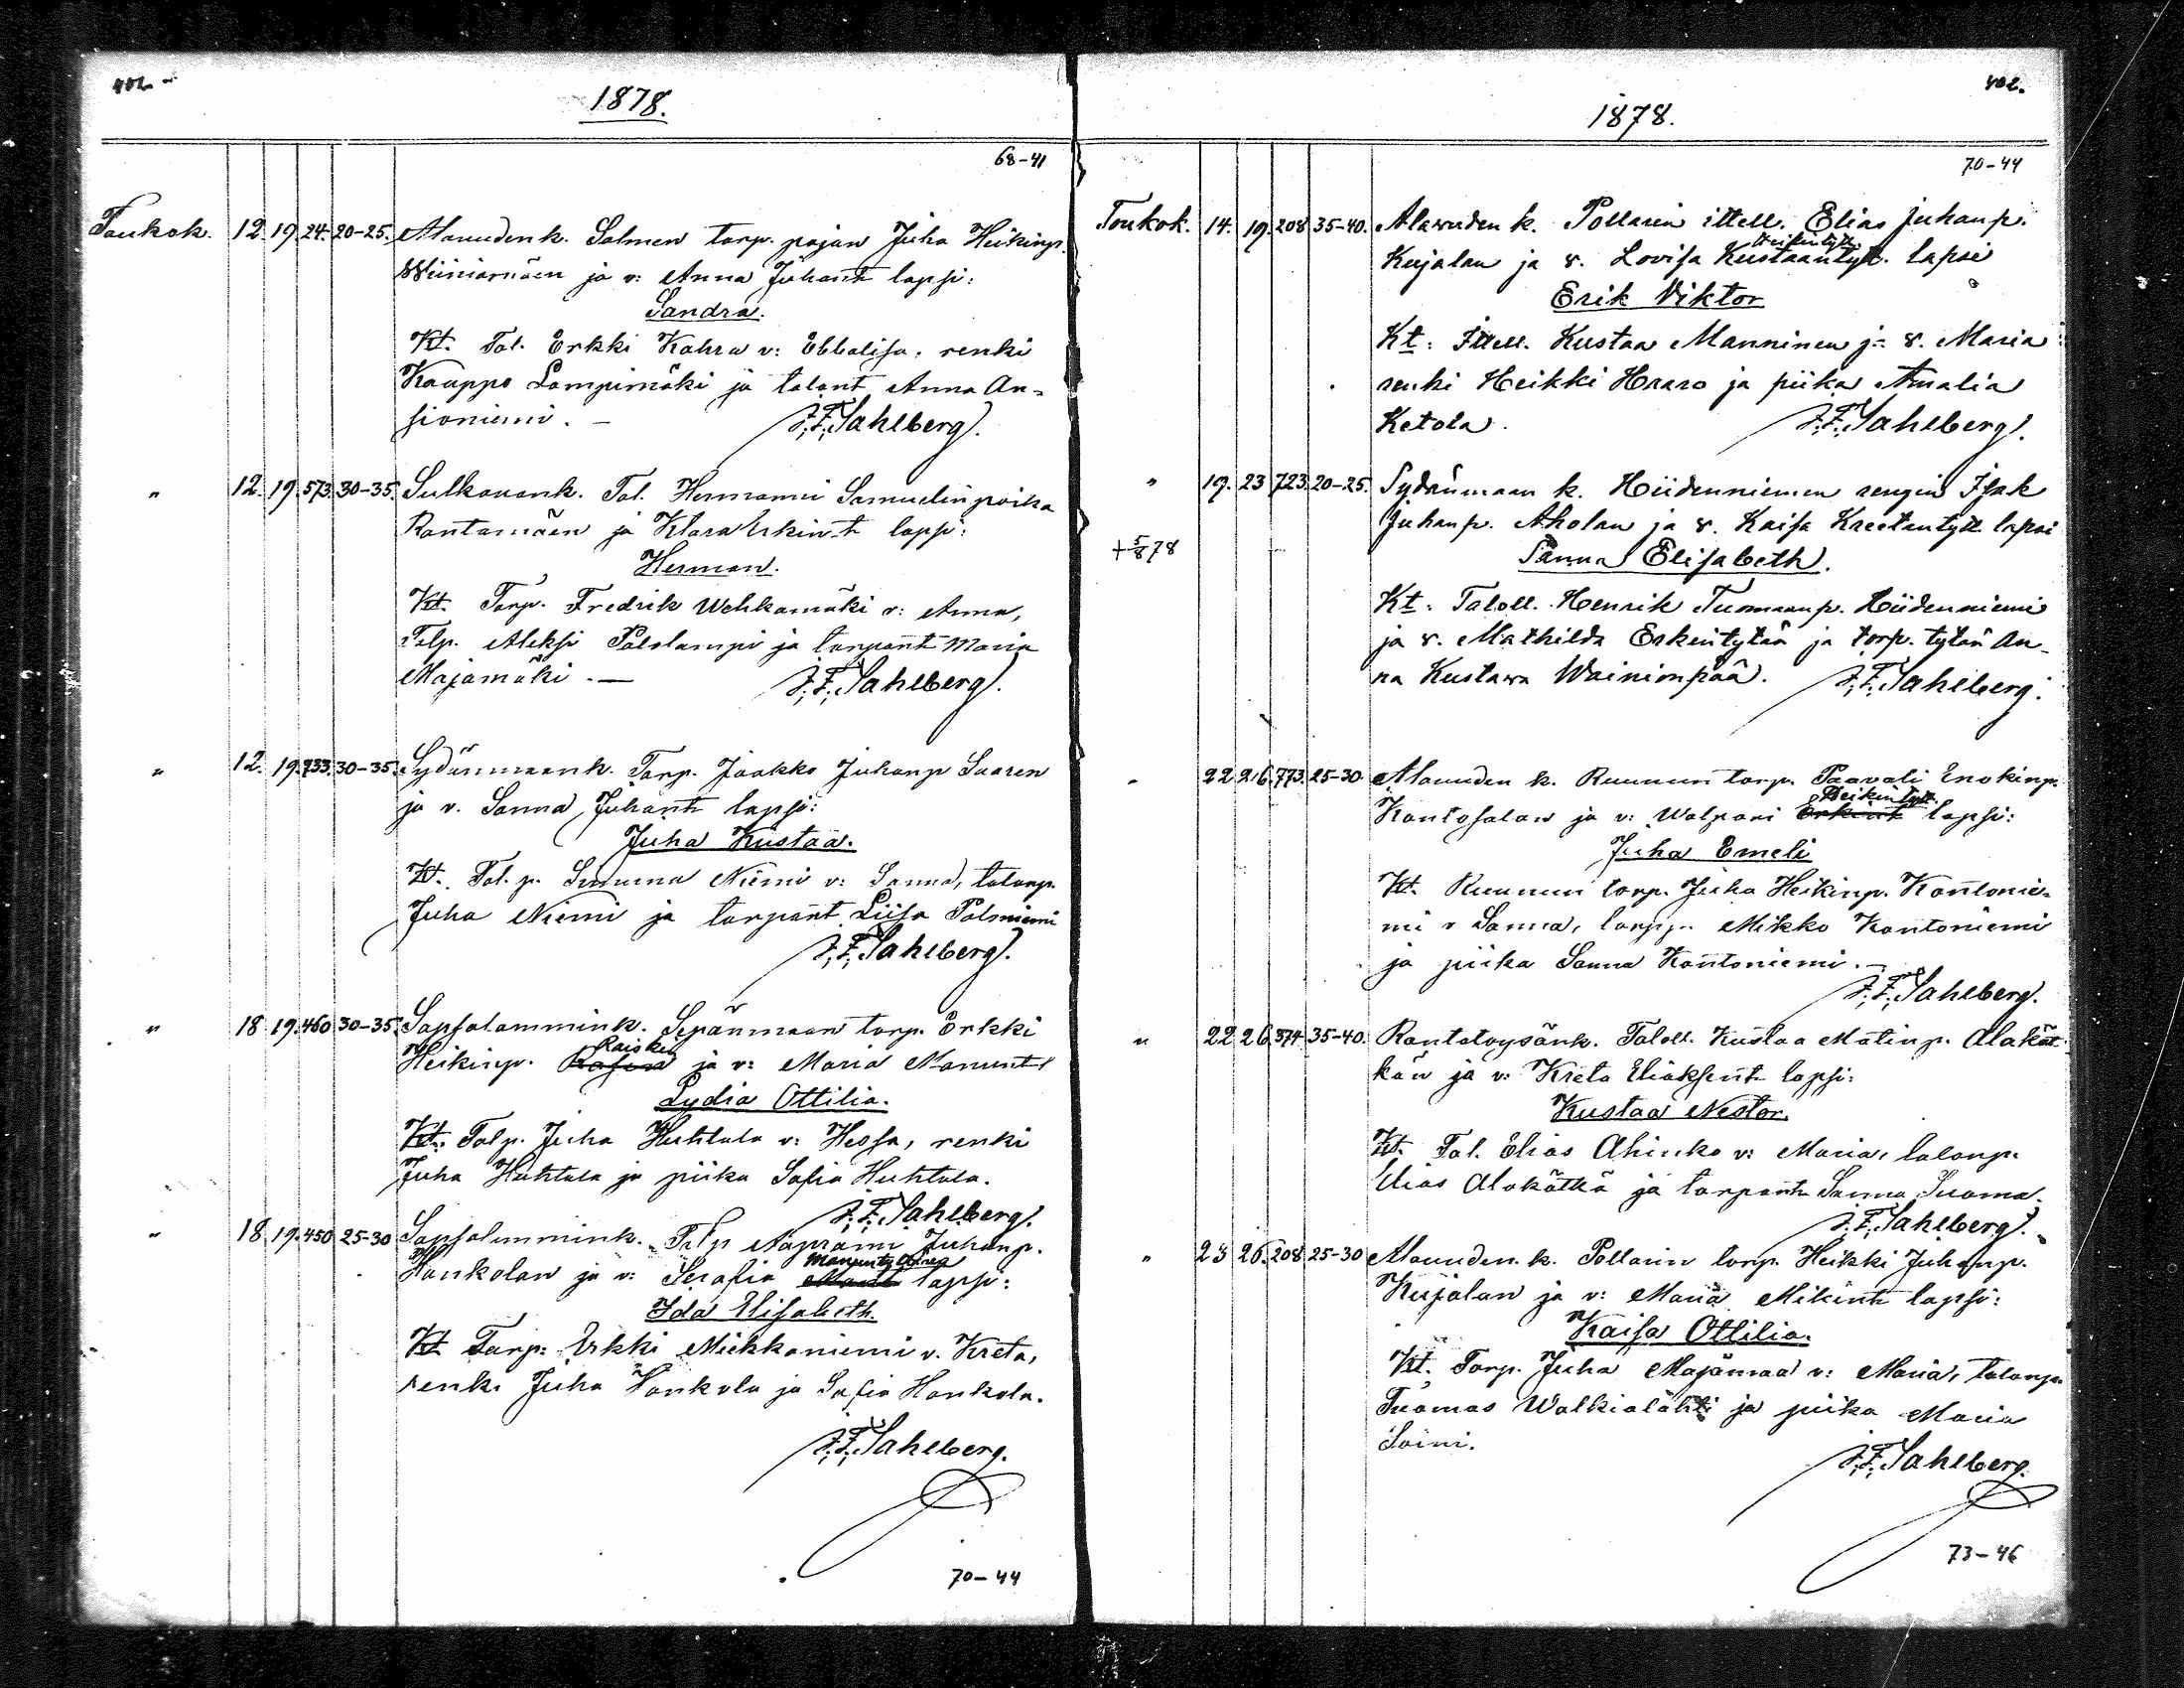 402
1878.
68-41
Toukok. 12. 19. 24. 20-25. Alavuden k. Salmen torp. pojan Juha Heikinp.
Wiiniamäen ja v: Anna Juhant lapsi:
Sandra.
Kt. Tal. Erkki Kahra v: Ebbalisa, renki
Kauppo Lampimäki ja talont Anna An-
sioniemi. — J. F. Sahlberg.
" 12. 19. 573. 30-35. Sulkavank. Tal. Hermanni Samuelin poika
Rantamäen ja Klara Erkint lapsi:
Herman.
Kt. Torp. Fredrik Wehkamäki v: Anna,
Talp. Aleksi Palolampi ja torpant Maria
Majamäki. — J. F. Sahlberg.
" 12. 19. 733. 30-35. Sydänmaank. Torp. Jaakko Juhanp Saaren
ja v. Sanna Juhant lapsi:
Juha Kustaa.
Kt. Tal. p. Simuna Niemi v: Sanna, talonp.
Juha Niemi ja torpant Liisa Palmiemi
J. F. Sahlberg.
" 18. 19. 460 30-35. Sapsalammink. Sepänmaan torp. Erkki
Raisken
Heikinp. ja v: Maria Manunt
Lydia Ottilia.
Kt. Talp. Juha Huhtala v: Hessa, renki
Juha Huhtala ja piika Sofia Huhtala.
J. F. Sahlberg.
" 18. 19. 450 25-30 Sapsalammink. Talp Aaprami Juhanp.
Manuntyttären
Honkolan ja v: Serafia lapsi:
Ida Elisabeth.
Kt Torp: Erkki Miekkoniemi v. Kreta,
renki Juha Honkola ja Sofia Honkola.
J. F. Sahlberg.
70-44
402.
1878.
70-44
Toukok. 14. 19. 208 35-40. Alavuden k. Pollarin ittell. Elias Juhanp.
Heikintytt.
Kujalan ja v. Lovisa Kustaantyt. lapsi
Erik Viktor
Kt: Ittell. Kustaa Manninen ja v. Maria
renki Heikki Haaro ja piika Amalia
Ketola. J. F. Sahlberg.
" 19. 23 723. 20-25. Sydänmaan k. Hiidenniemen rengin Isak
Juhanp. Aholan ja v. Kaisa Kreetantytt. lapsi
+ 5/8 78
Sanna Elisabeth.
Kt: Taloll. Henrik Tuomaanp. Hiidenniemi
ja v. Mathilda Erkintytär ja torp. tytär An-
na Kustava Wainionpää. J. F. Sahlberg.
" 22 26. 773. 25-30. Alavuden k. Ruunun torp. Paavali Enokinp.
Heikintytt.
Kontosalan ja v: Walpori Erkint lapsi:
Juha Emeli
Kt. Ruunun torp. Juha Heikinp. Kontonie-
mi v Sanna, torpp. Mikko Kontoniemi
ja piika Sanna Kontoniemi. —
J. F. Sahlberg.
" 22 26. 374 35-40. Rantatöysänk. Taloll. Kustaa Matinp. Alakät-
kän ja v: Kreta Eliaksent lapsi:
Kustaa Nestor.
Kt. Tal. Elias Ahinko v: Maria, talonp.
Elias Alakätkä ja torpant Sanna Suoma.
J. F. Sahlberg.
" 23 26. 208 25-30 Alavuden. k. Pollarin torp. Heikki Juhanp.
Kujalan ja v: Maria Mikint lapsi:
Kaisa Ottilia.
Kt. Torp. Juha Majamaa v: Maria, talonp.
Tuomas Walkialahti ja piika Maria
Soini. J. F. Sahlberg.
73-46